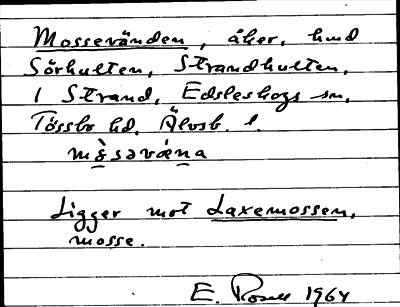 Mossevänden, åker, hmd
Sörhulten, Strandhulten,
1 Strand, Edsleskogs sn,
Tössbo hd, Älvsb. l.
mòsəvæna
Ligger mot Laxemossen,
mosse.
E. Rosell 1964